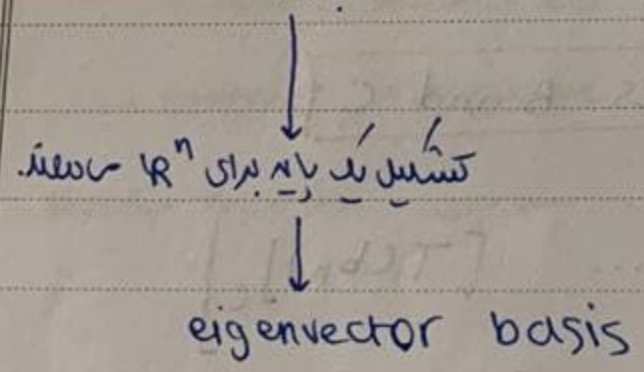 تشکیل یک پایه برای Rⁿ می‌دهند.
eigenvector basis